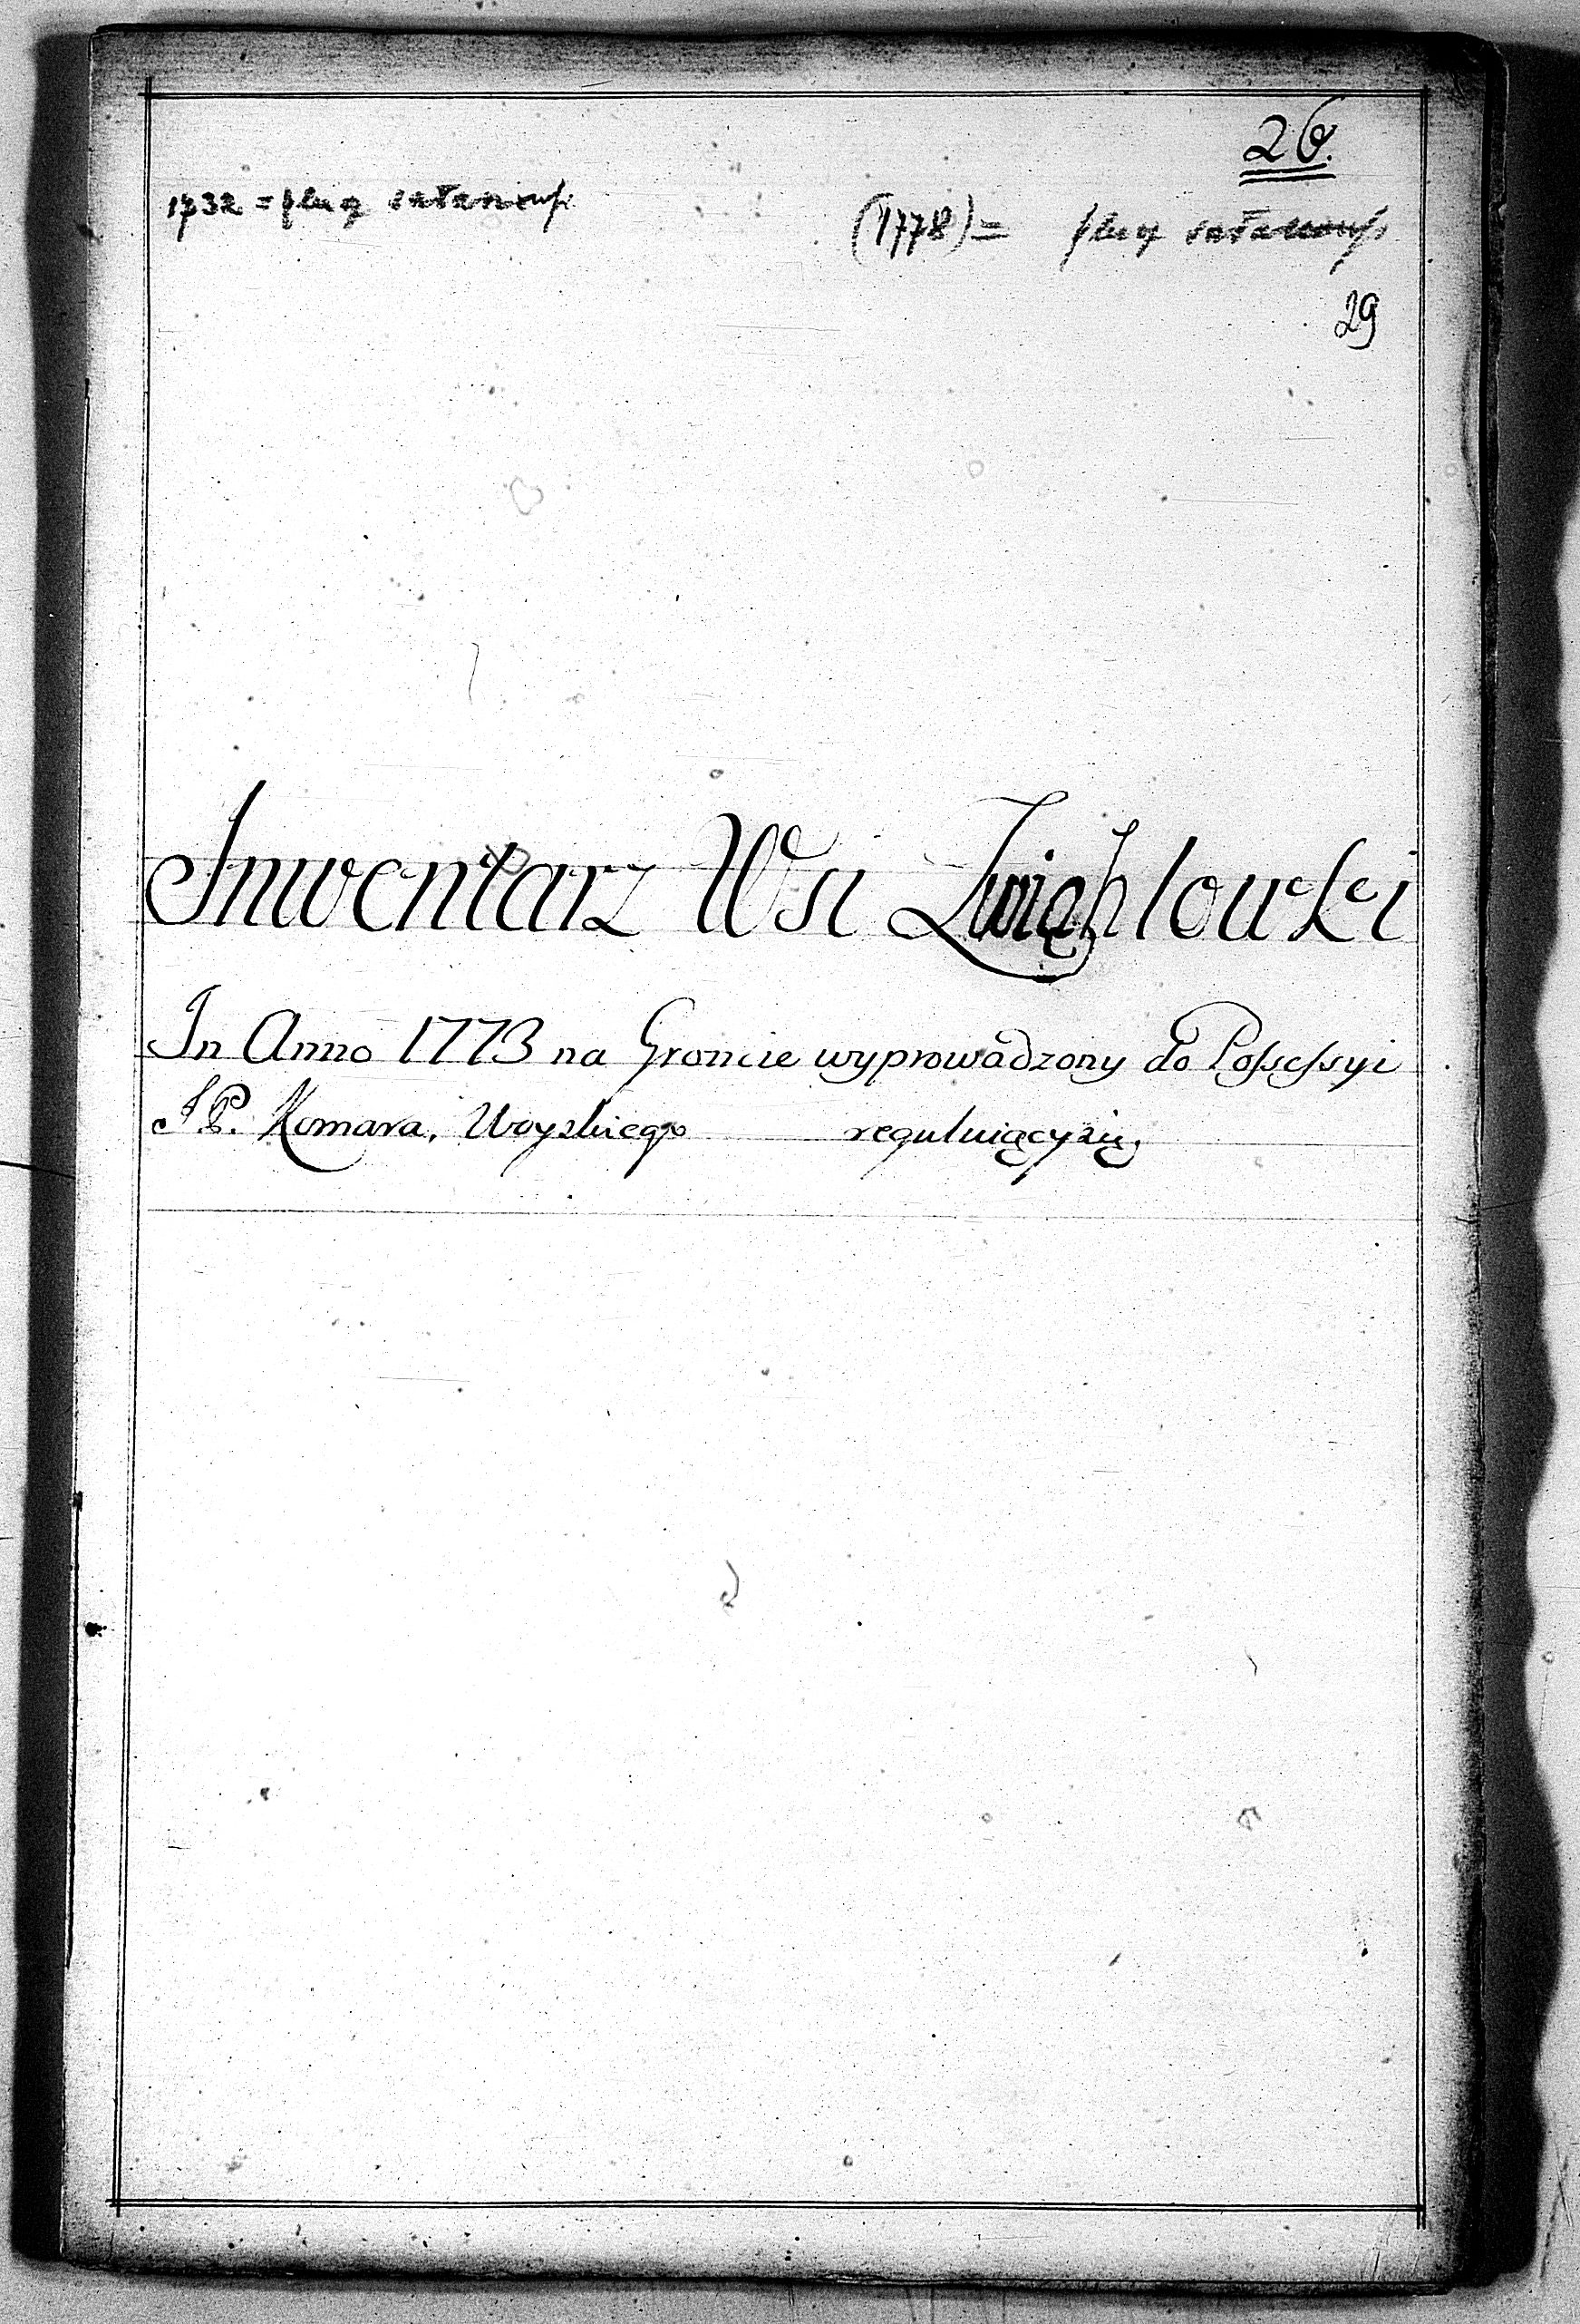 26.
1732 = pług
(1778) = pług
29
Inwentarz Wsi Zwięhlowki
In Anno 1773 na Groncie wyprowadzony do Possessyi
J P. Komara, Woyskiego regulniącysię,